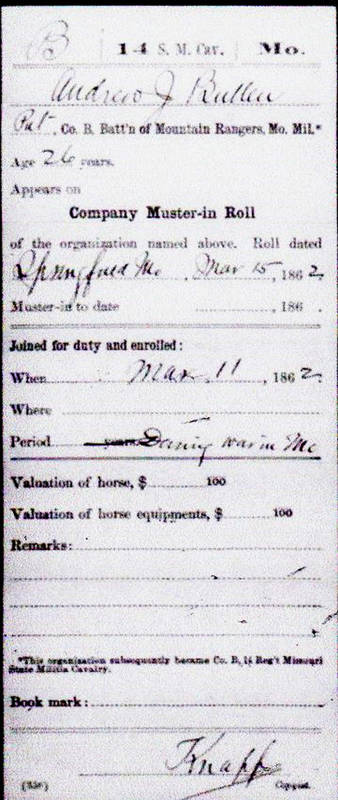 B 14 S. M. Cav. Mo.
Andrew J Bullen
Pvt, Co. B, Batt'n of Mountain Rangers, Mo. Mil.*
Age 26 years.
Appears on
Company Muster-in Roll
of the organization named above. Roll dated
Springfield Mo, Mar 15, 1862.
Muster-in to date , 186 .
Joined for duty and enrolled:
When Mar 11, 1862.
Where
Period years During war in Mo
Valuation of horse, $ 100
Valuation of horse equipments, $ 100
Remarks:
*This organization subsequently became Co. B, 14 Reg't Missouri
State Militia Cavalry.
Book mark:
Knapp
(356) Copyist.